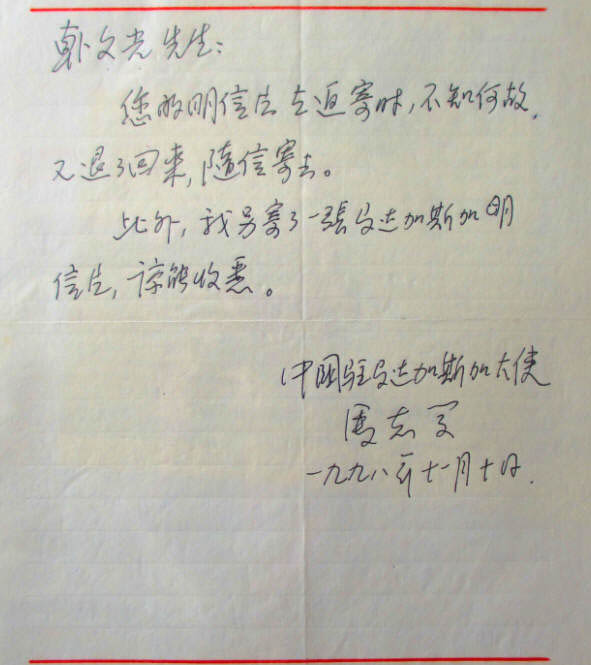 文光先生:
您的明信片在返寄时,不知何故,
又退了回来,随信寄去。
此外,我另寄了一張马达加斯加明
信片,谅能收悉。
中国驻马达加斯加大使
志
一九九八年十一月十日.